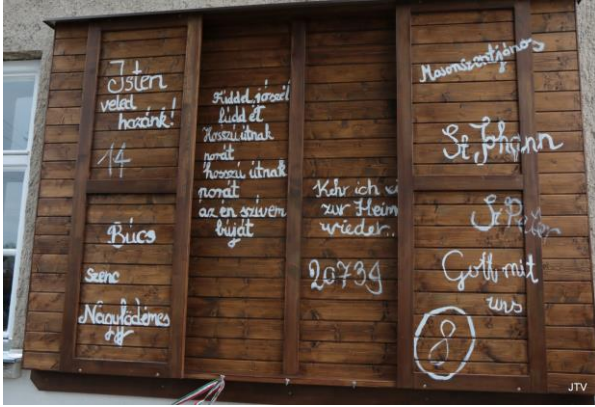 Isten
veled
hazánk!
14
Búcs
Szenc
Nagyfödémes
fúdd el
Hosszú útnak
porát
hosszú útnak
porát
az én szívem
búját
Kehr ich
zur Heim
wieder..
20739
Mosonszentjános
St Johann
St Peter
Gott mit
uns
8
JTV